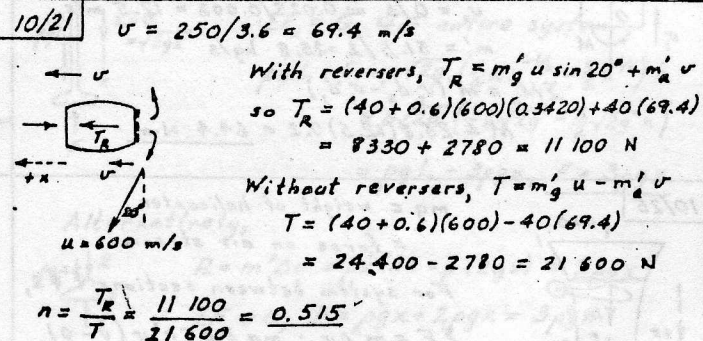 10/21
v = 250/3.6 = 69.4 m/s
With reversers, T_R = m'_g u sin 20° + m'_a v
so T_R = (40 + 0.6)(600)(0.3420) + 40(69.4)
= 8330 + 2780 = 11 100 N
Without reversers, T = m'_g u - m'_a v
T = (40 + 0.6)(600) - 40(69.4)
= 24 400 - 2780 = 21 600 N
v
T_R
+x
v
20°
u = 600 m/s
n = T_R / T = 11 100 / 21 600 = 0.515